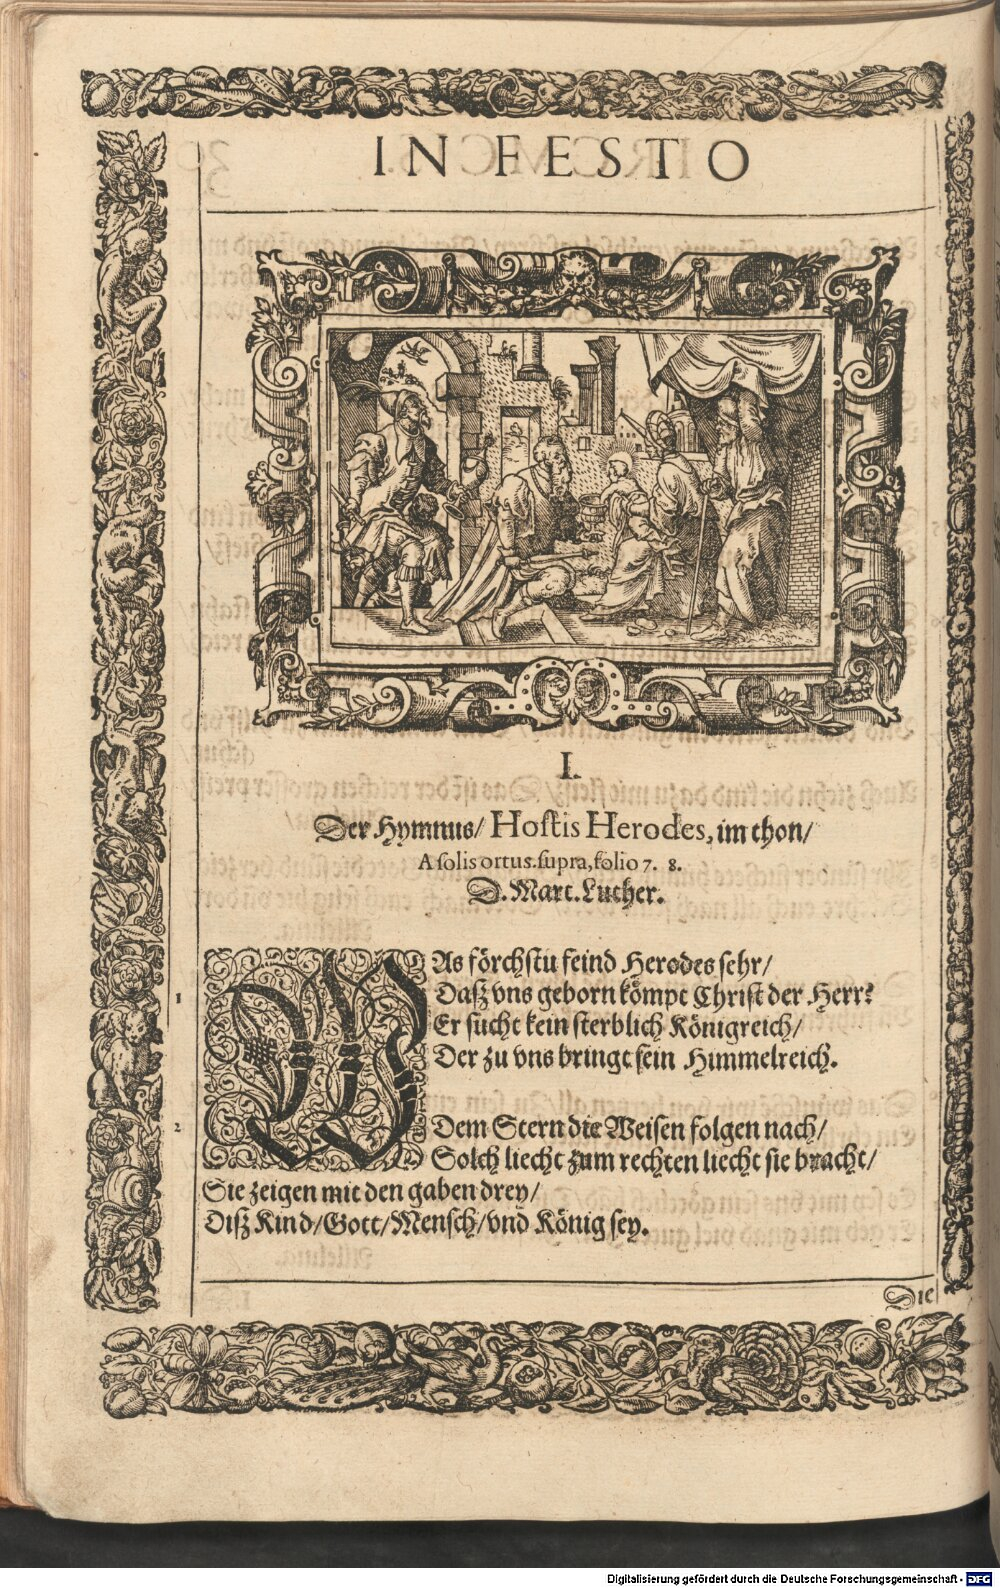 IN FESTO
I.
Der Hymnus/ Hostis Herodes, im thon/
A solis ortus. supra, folio 7. 8.
D. Mart. Luther.
WAs förchstu feind Herodes sehr/
1 Dasz vns geborn kömpt Christ der Herr?
Er sucht kein sterblich Königreich/
Der zu vns bringt sein Himmelreich.
2 Dem Stern die Weisen folgen nach/
Solch liecht zum rechten liecht sie bracht/
Sie zeigen mit den gaben drey/
Disz Kind/ Gott/ Mensch/ vnd König sey.
Die
Digitalisierung gefördert durch die Deutsche Forschungsgemeinschaft - DFG